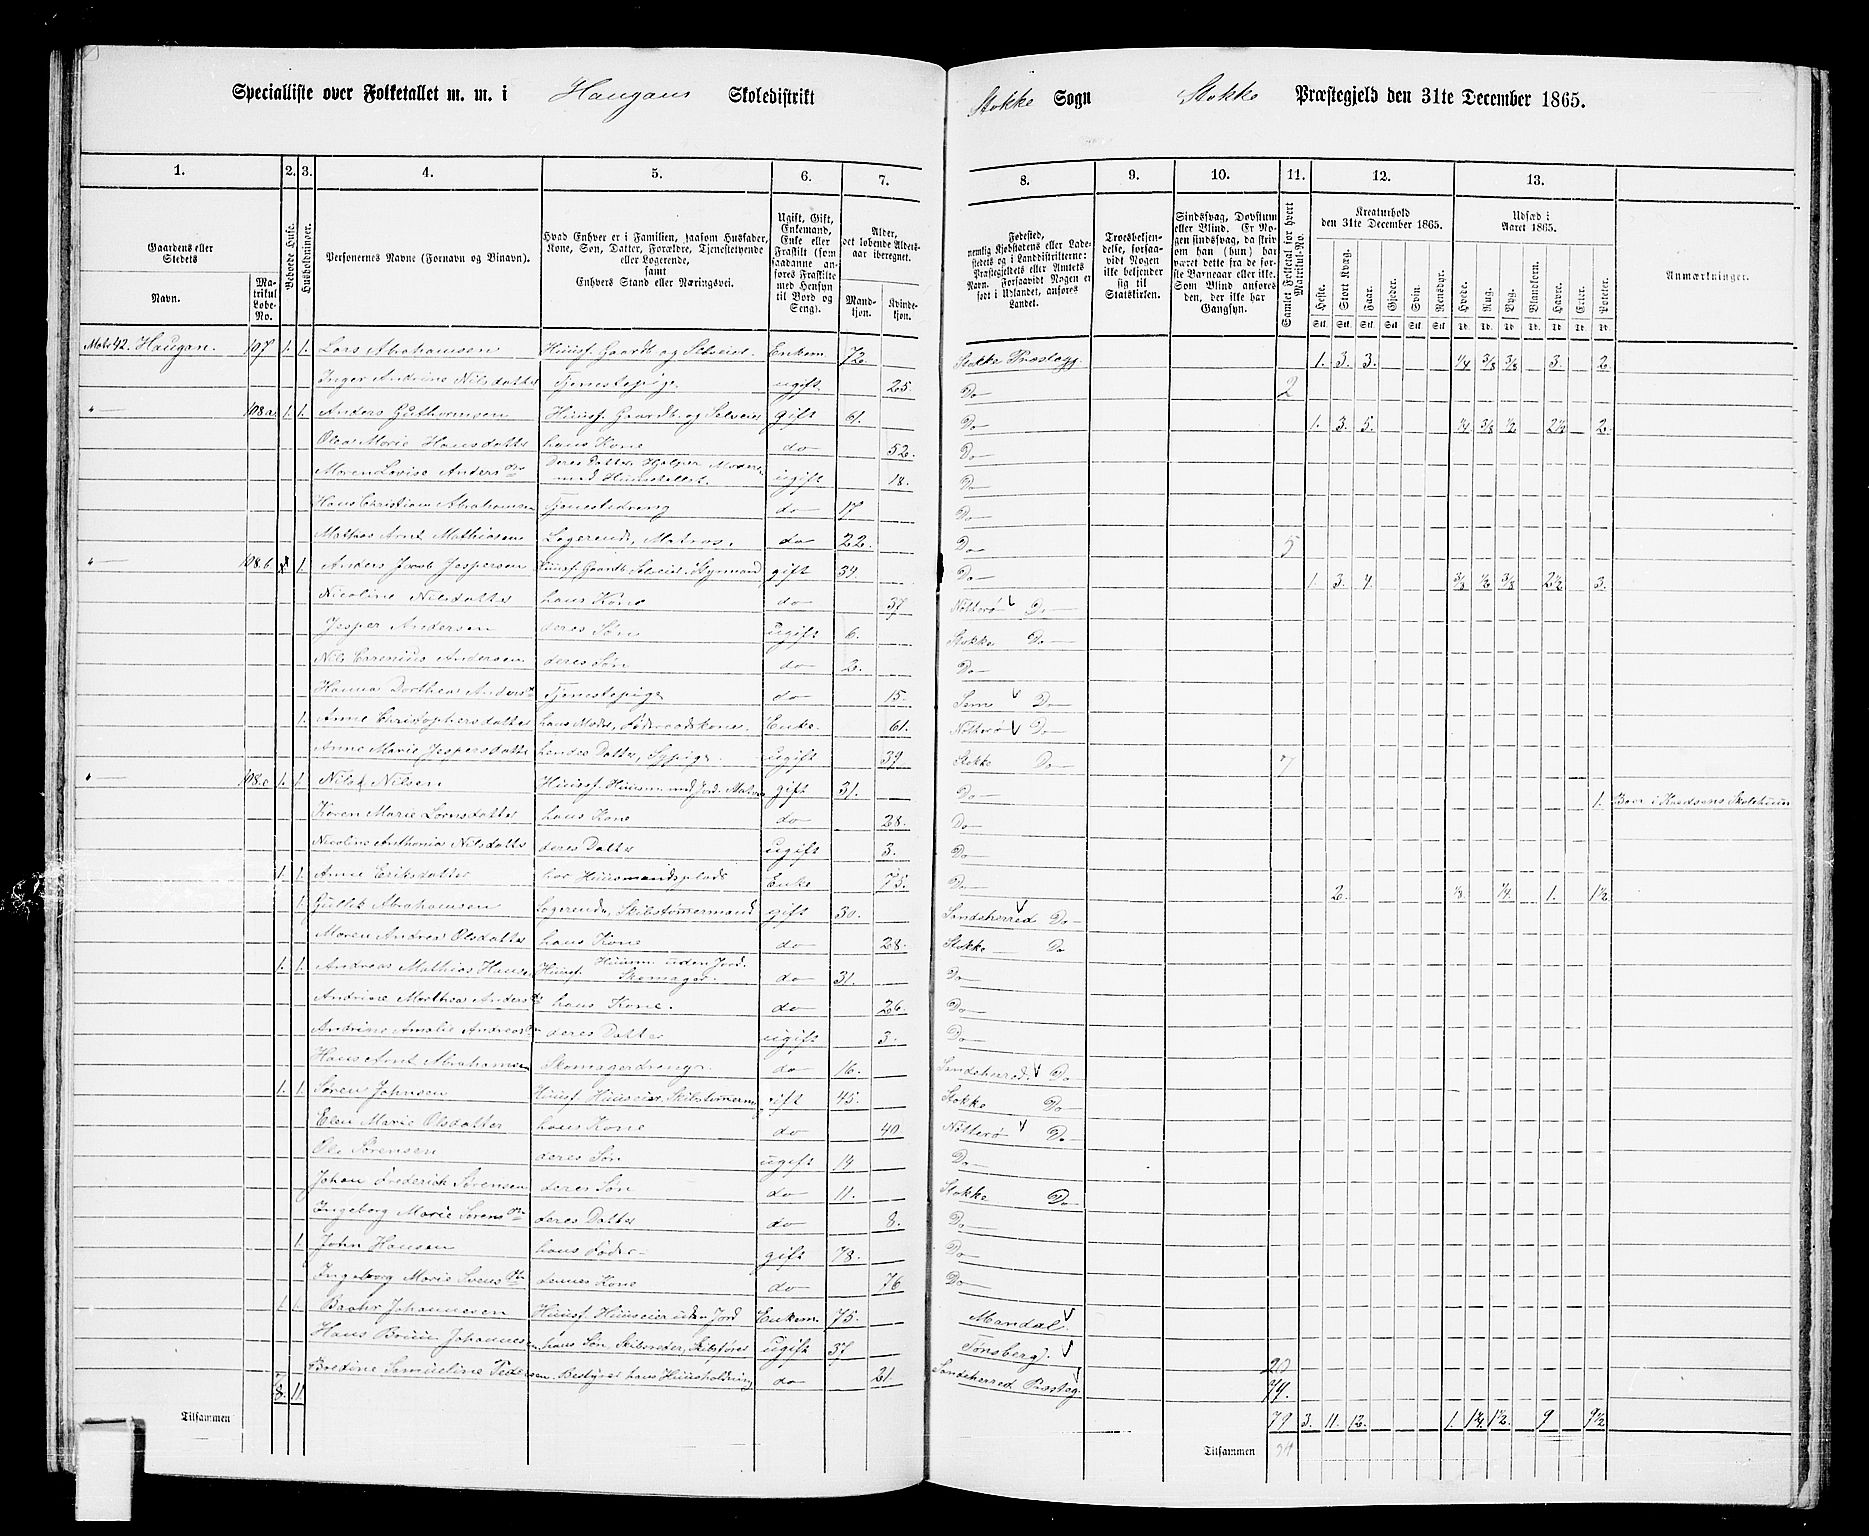 Specialliste over Folketallet m. m. i Haugans Skoledistrikt Stokke Sogn Stokke Præstegjeld den 31te December 1865.
1. 2. 3. 4. 5. 6. 7. 8. 9. 10. 11. 12. 13.
Gaardens eller Stedets
Navn.
Matrikul Løbe-No.
Beboede Huse.
Husholdninger.
Personernes Navne (Fornavn og Tilnavn).
Hvad Enhver er i Familien, saasom Husfader, Kone, Søn, Datter, Forældre, Tjenestetyende eller Logerende, samt Enhvers Stand eller Næringsvei.
Ugift, Gift, Enkemand, Enke eller Frastilt (som saadanne anføres Frastilte med Hensyn til Bord og Seng).
Alder, det løbende Aldersaar iberegnet.
Mandkjøn. Kvindekjøn.
Fødested, nemlig Kjøbstadens eller Ladestedets og i Landdistrikterne: Præstegjeldets eller Amtets Navn. Forsaavidt Nogen er født i Udlandet, anføres Landet.
Troesbekjendelse, forsaavidt Nogen ikke bekjender sig til Statskirken.
Sindssvag, Døvstum eller Blind. Er Nogen sindssvag, da skriv om han (hun) har været dette fra de første Barneaar eller ikke. Som Blind anføres den, der ikke har Gangsyn.
Samlet Folketal for hvert Matrikul-No.
Kreaturhold den 31te December 1865.
Heste. Stort Kvæg. Faar. Gjeder. Svin. Rensdyr.
Udsæd i Aaret 1865.
Hvede. Rug. Byg. Blandkorn. Havre. Erter. Poteter.
Anmærkninger.
42. Haugan. 107 1. 1. Lars Abrahamsen Huusf. Gaardb. og Selveier Enkem. 72. Stokke Præstegj. 1. 3. 3. 1/4 3/8 3/8 3. 2.
Inger Andrine Nilsdatter Tjenestepige ugift 25 Do 2
108a 1. 1. Anders Guthormsen Huusf. Gaardb. og Selveier gift 61. Do 1. 3. 5. 1/4 3/8 1/2 2 1/2 2.
Olea Marie Hansdatter hans Kone do 52. Do
Maren Lovise Anders Dr deres Datter Hjelper Moderen med Huusstellet. ugift 18. Do
Hans Christian Abrahamsen Tjenestedreng do 17 Do
Mathias Arnt Mathiasen Logerende, Matros. do 22. Do 5
108b 1. Anders Jacob Jespersen Huusf. Gaardb. Selveier, Styrmand gift 39. Do 1. 3. 4. 3/8 1/2 3/8 2 1/2 3.
Nicoline Nilsdatter hans Kone do 37 Nøtterø Do
Jesper Andersen deres Søn ugift 6. Stokke Do
Nils Andersen deres Søn do 2. Do
Hanna Dorthea Anders Dr Tjenestepige do 15. Sem Do
1. Anne Christophersdatter hans Moder, Føderaadskone. Enke. 61. Nøtterø Do
Anne Marie Jespersdatter hendes Datter, Sypige ugift 39 Stokke Do 7
108c 1. 1. Nils Nilsen Huusf. Huusm. med Jord. Matros gift 31. Do 1. Boer i Skolehuus
Karen Marie Larsdatter hans Kone do 28. Do
Nicoline Anthonia Nilsdatter deres Datter ugift 3. Do
1. 1. Anne Eriksdatter har Huusmandsplads Enke 75. Do 2. 1/8 1/4 1. 1 1/2
1. Gullik Abrahamsen Logerende, Skibstømmermand gift 30. Sandeherred Do
Maren Andrea Olsdatter hans Kone do 28. Stokke Do
1. 1. Andreas Mathias Hansen Huusf. Huusm. uden Jord. Skomager. do 31. Do
Andrine Marthea Anders Dr hans Kone. do 26. Do
Andrine Amalie Andreas Dr deres Datter ugift 3. Do
Hans Arnt Abrahamsen Skomagerdreng. do 16. Sandeherred. Do
1. 1. Søren Johnsen Huusf. Huuseier, Skibstømmerm. gift 45. Stokke Do
Elen Marie Olsdatter hans Kone do 40 Nøtterø Do
Ole Sørensen deres Søn ugift 14 Do
Johan Frederick Sørensen deres Søn do 11. Stokke Do
Ingeborg Marie Sørens Dr deres Datter do 8. Do
1. John Hansen hans Fader gift 78. Do
Ingeborg Marie Svens Dr dennes Kone do 76 Do
1. 1. Johannesen Huusf. Huuseier uden Jord Enkem. 75. Mandal.
Hans Bruun Johannesen hans Søn Skibsreder, Skibsfører ugift 37 Tønsberg.
Samueline Pedersen Bestyrer hans Huusholdning do 21. Sandeherred Præsteg. 20
8. 11 74.
Tilsammen 3. 11. 12. 1. 1 1/4 1 1/2. 9 9 1/2
Tilsammen 34